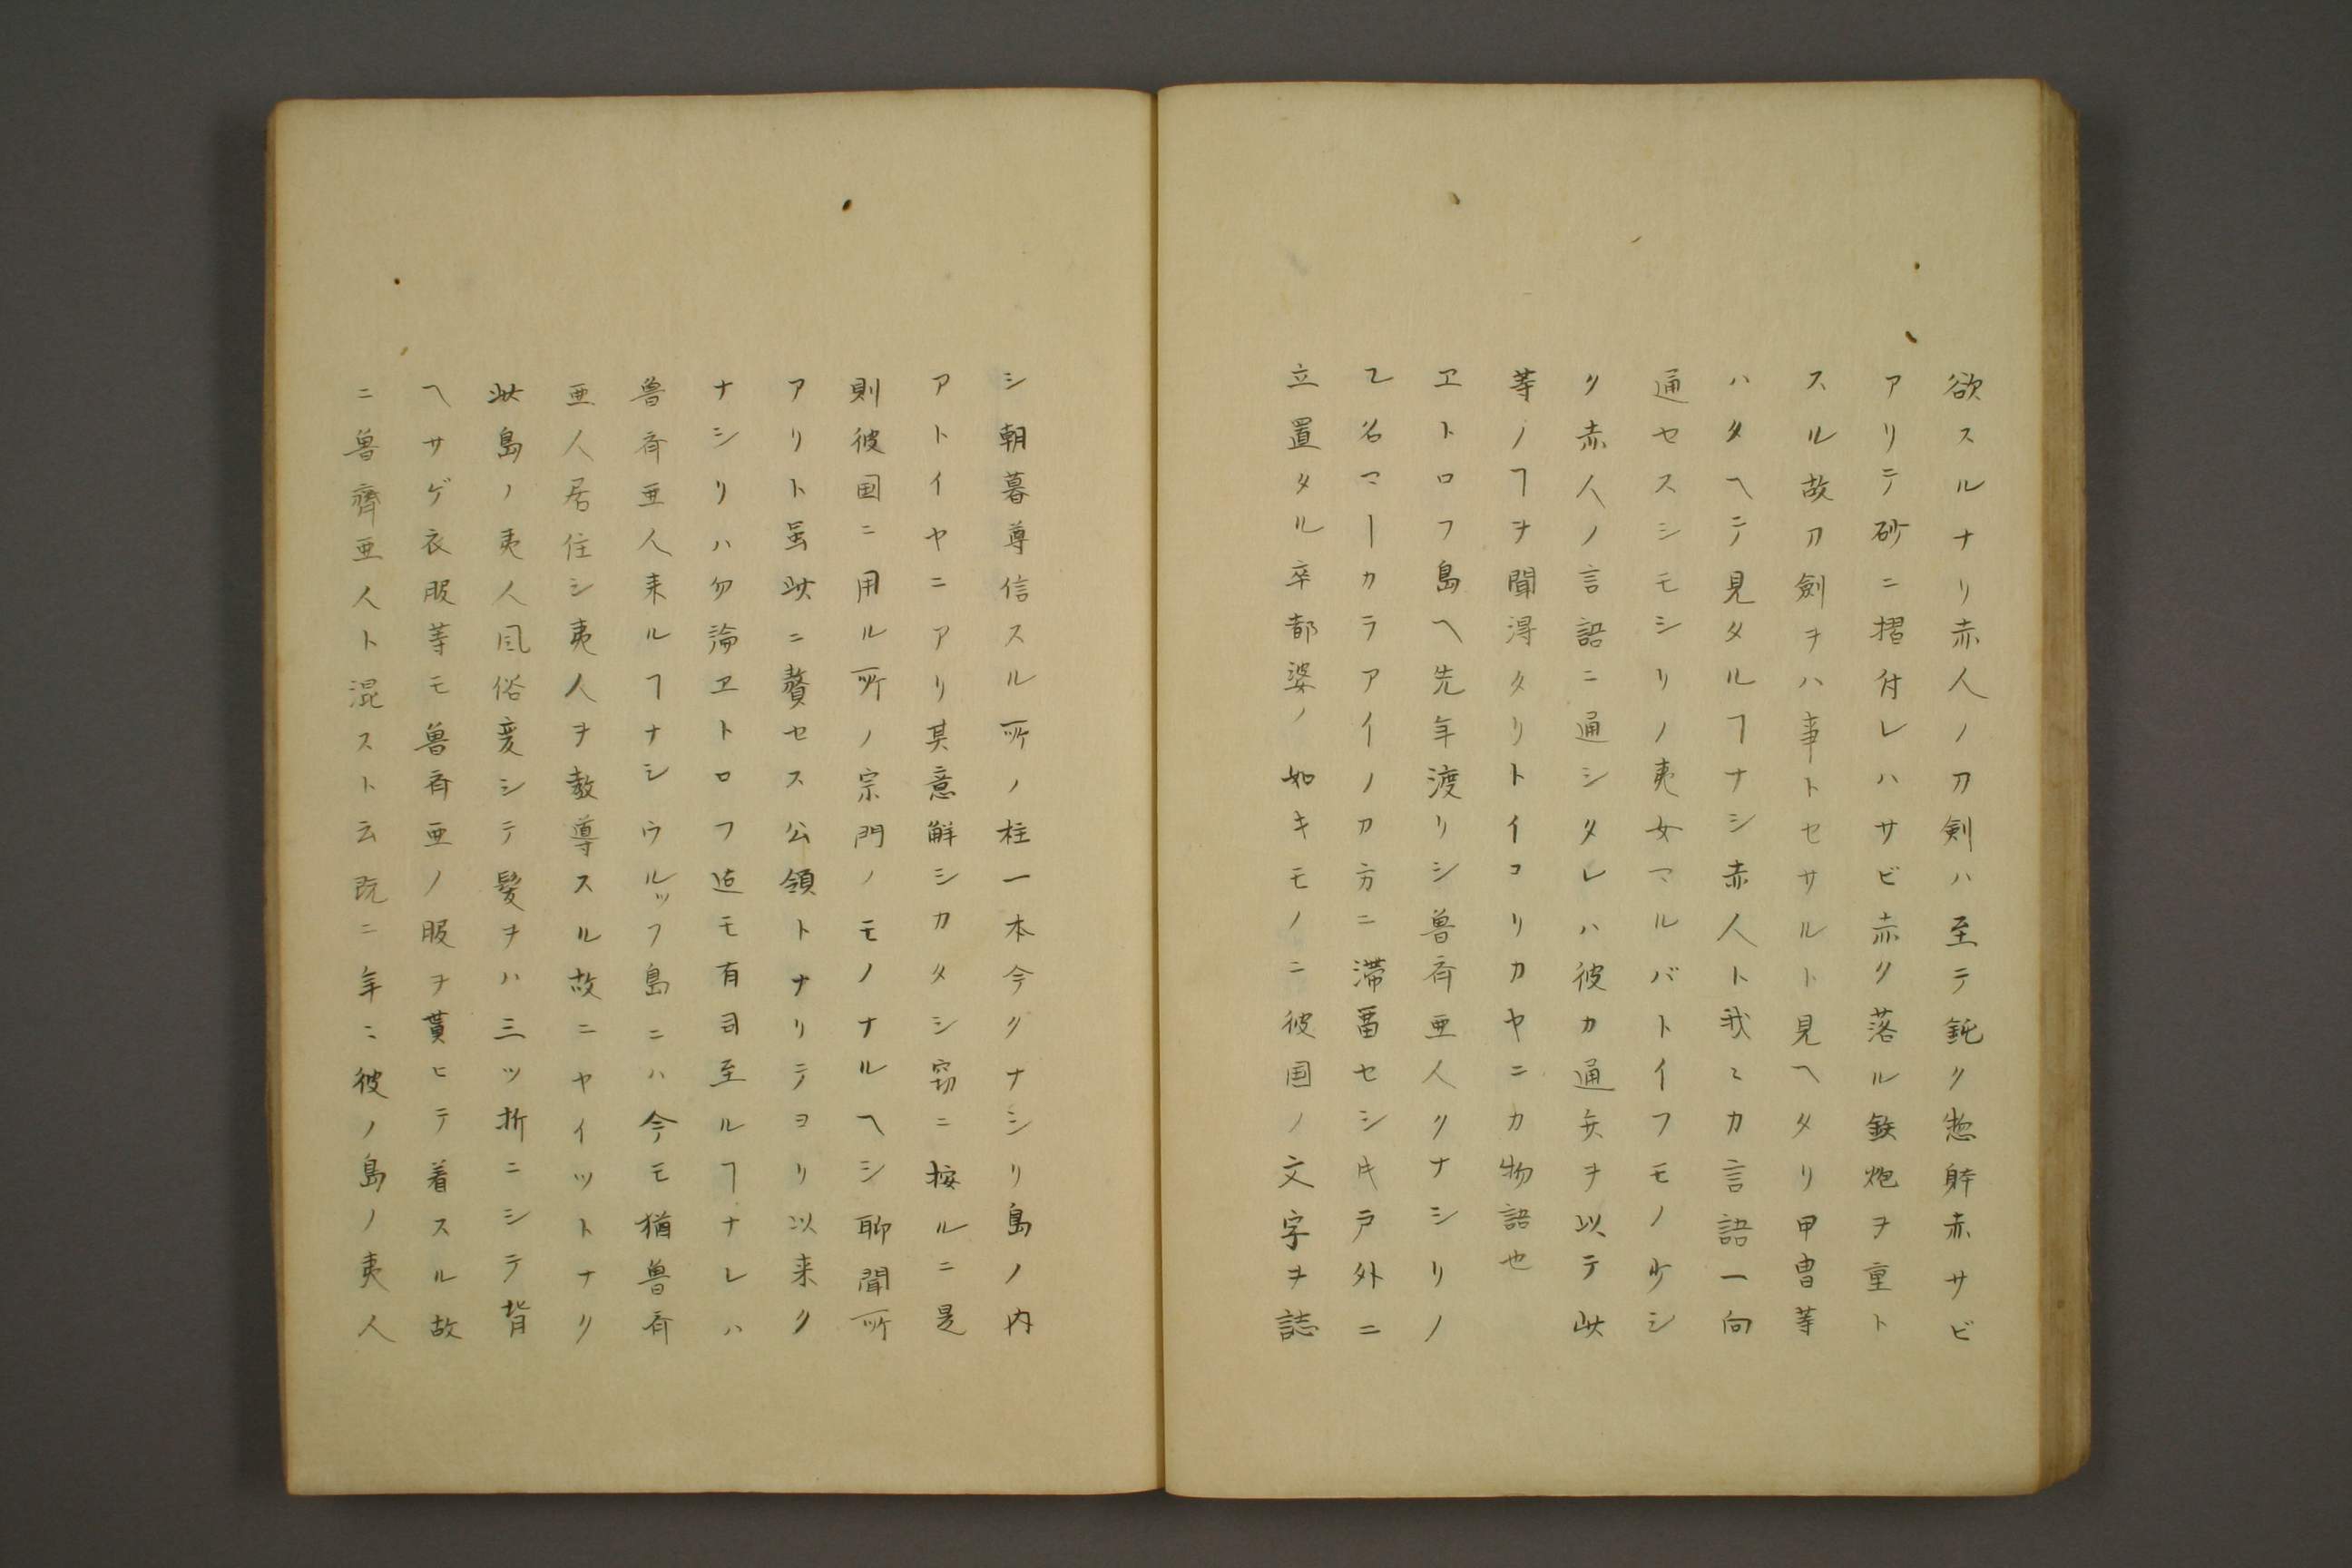 欲スルナリ赤人ノ刀剣ハ至テ鈍ク惣躰赤サビ
アリテ砂ニ摺付レハサビ赤ク落ル鉄炮ヲ重ト
スル故刀劍ヲハ事トセサルト見ヘタリ甲冑等
ハタヘテ見タルヿナシ赤人ト我々カ言語一向
通セスシモシリノ夷女マルバトイフモノ少シ
ク赤人ノ言語ニ通シタレハ彼カ通弁ヲ以テ此
等ノヿヲ聞得タリトイコリカヤニカ物語也
ヱトロフ島ヘ先年渡リシ魯斉亜人クナシリノ
乙名マーカラアイノカ方ニ滞畱セシ片戸外ニ
立置タル卒都婆ノ如キモノニ彼国ノ文字ヲ誌
シ朝暮尊信スル所ノ柱一本今クナシリ島ノ内
アトイヤニアリ其意解シカタシ窃ニ按ルニ是
則彼国ニ用ル所ノ宗門ノモノナルヘシ聊聞所
アリト虽此ニ贅セス公領トナリテヨリ以来ク
ナシリハ勿論ヱトロフ迠モ有司至ルヿナレハ
魯斉亜人来ルヿナシウルップ島ニハ今モ猶魯斉
亜人居住シ夷人ヲ教導スル故ニヤイツトナク
此島ノ夷人風俗変シテ髪ヲハ三ツ折ニシテ背
ヘサゲ衣服等モ魯斉亜ノ服ヲ貰ヒテ着スル故
ニ魯齊亜人ト混スト云既ニ年々彼ノ島ノ夷人